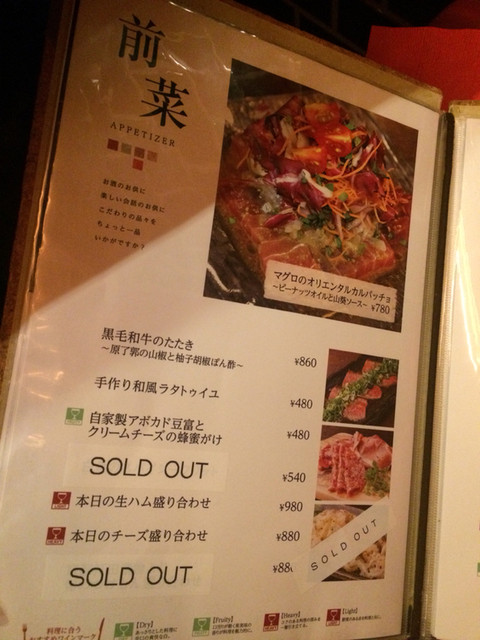 前菜
APPETIZER
お酒のお供に
楽しい会話のお供に
こだわりの品々を
ちょっと一品
いかがですか?
マグロのオリエンタルカルパッチョ
~ピーナッツオイルと山葵ソース~ ¥780
黒毛和牛のたたき
~原了郭の山椒と柚子胡椒ぽん酢~ ¥860
手作り和風ラタトゥイユ ¥480
自家製アボカド豆富と
クリームチーズの蜂蜜がけ ¥480
SOLD OUT ¥540
本日の生ハム盛り合わせ ¥980
本日のチーズ盛り合わせ ¥880
SOLD OUT ¥88
SOLD OUT
料理に合う
おすすめワインマーク
【Dry】
【Fruity】
【Heavy】
【Light】